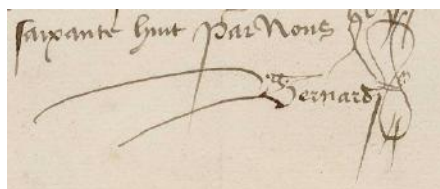 saixante huit par Nous
Bernard